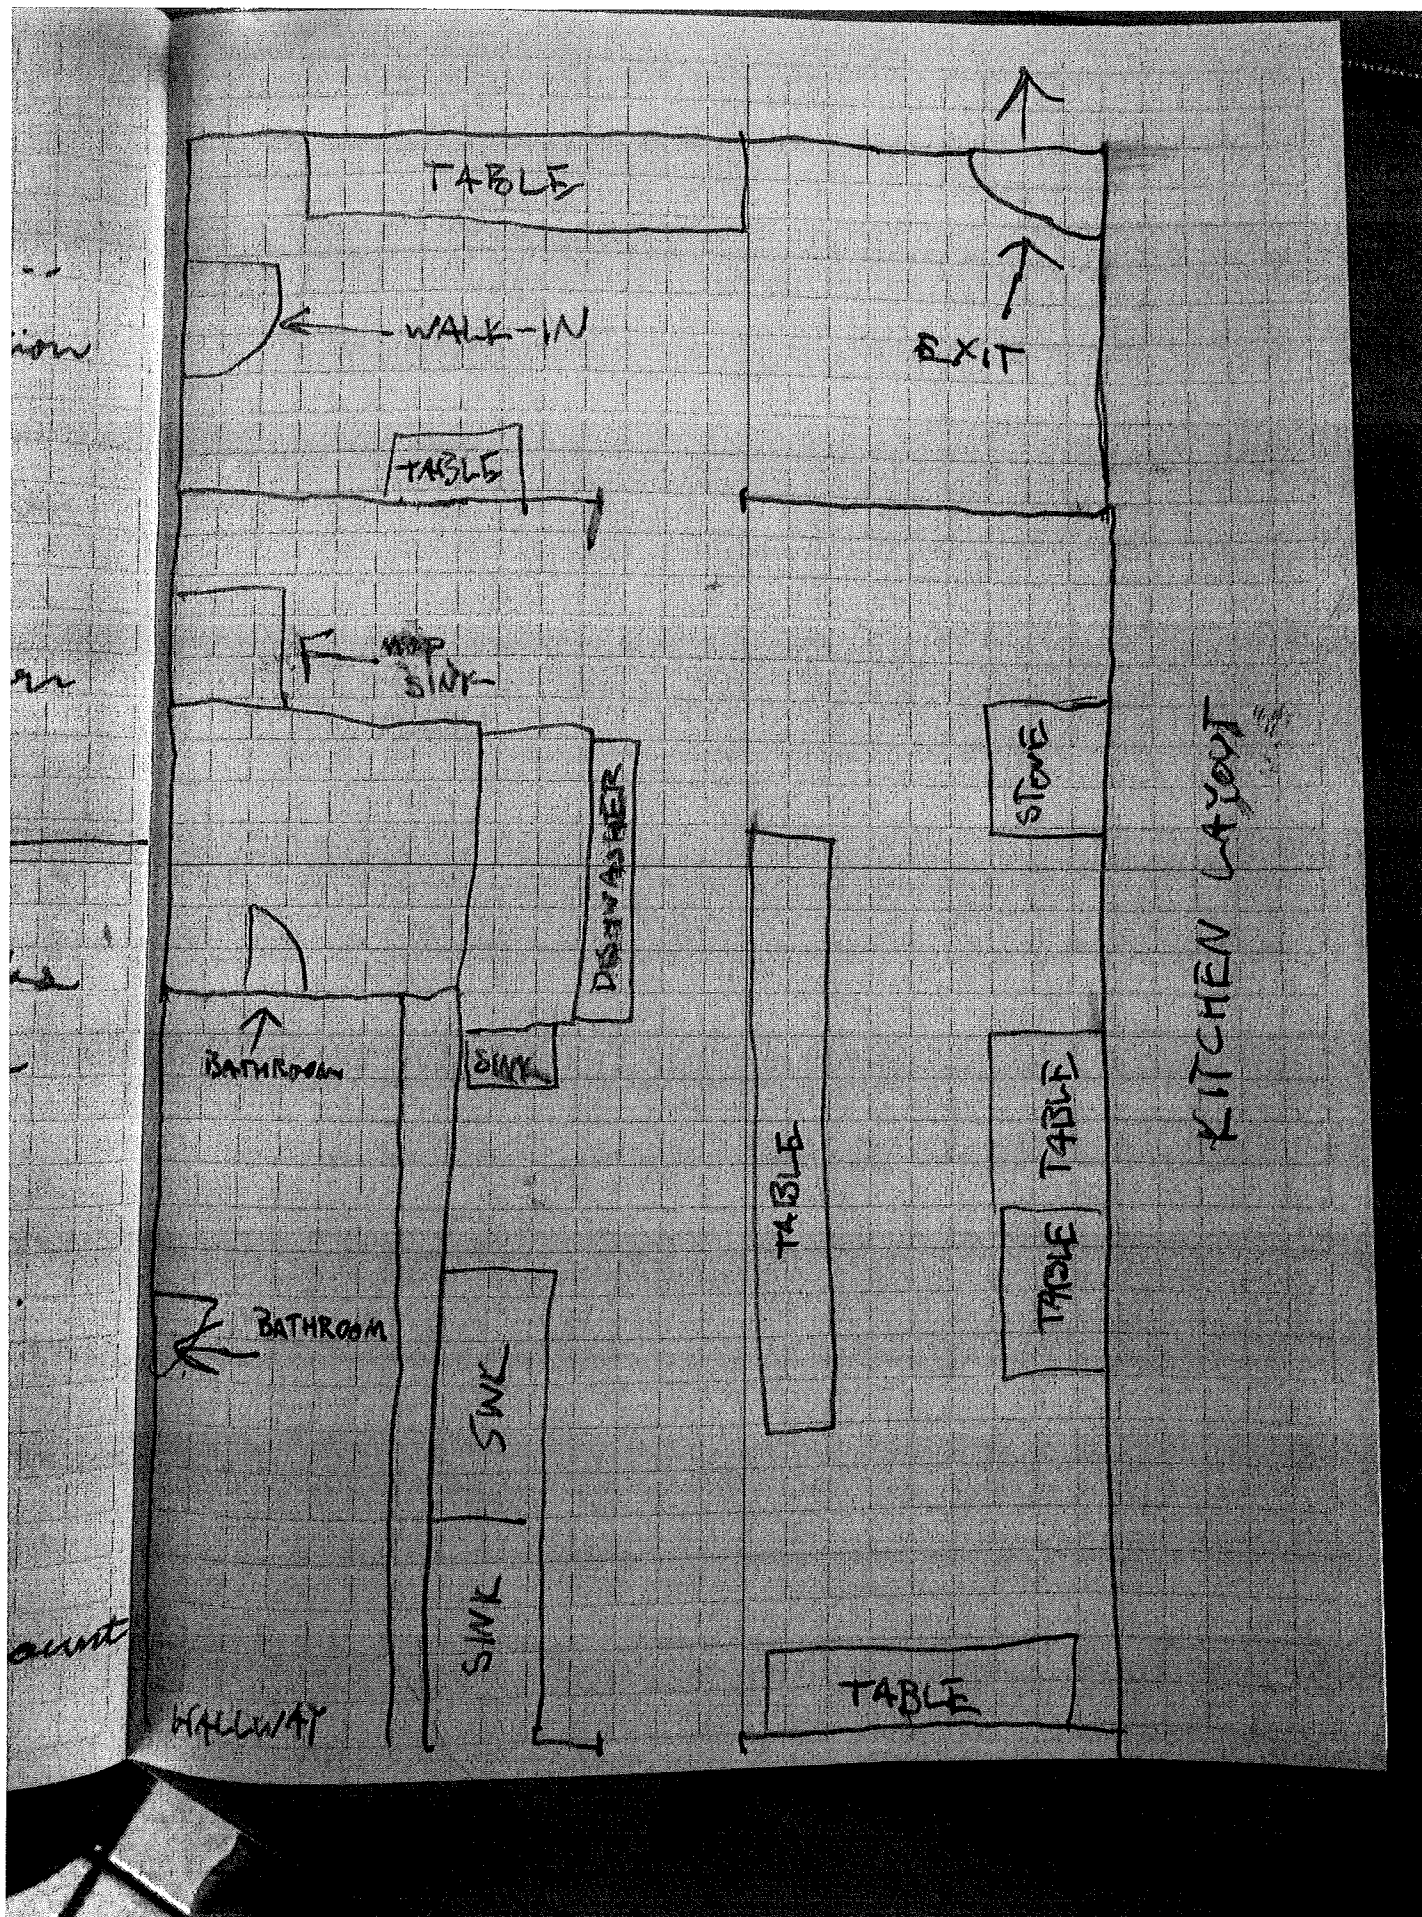 TABLE
WALK-IN
EXIT
TABLE
MOP
SINK
STOVE
DISHWASHER
KITCHEN LAYOUT
BATHROOM
SINK
TABLE
TABLE
TABLE
BATHROOM
SINK
SINK
TABLE
HALLWAY